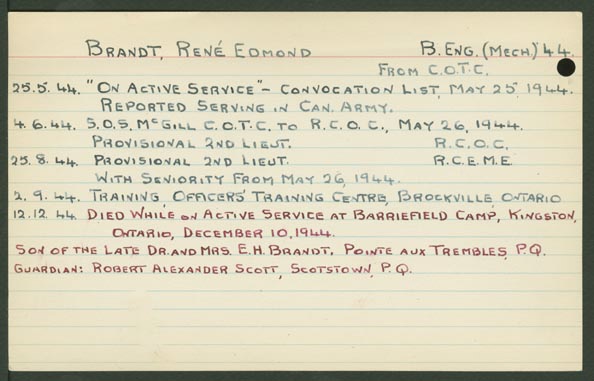 BRANDT, RENÉ EDMOND B. ENG. (MECH.) '44.
FROM C.O.T.C.
25.5.44. "ON ACTIVE SERVICE" - CONVOCATION LIST, MAY 25, 1944.
REPORTED SERVING IN CAN. ARMY.
4.6.44. S.O.S. MCGILL C.O.T.C. TO R.C.O.C., MAY 26, 1944.
PROVISIONAL 2ND LIEUT. R.C.O.C.
25.8.44. PROVISIONAL 2ND LIEUT. R.C.E.M.E.
WITH SENIORITY FROM MAY 26, 1944.
2.9.44. TRAINING, OFFICERS' TRAINING CENTRE, BROCKVILLE, ONTARIO
12.12.44 DIED WHILE ON ACTIVE SERVICE AT BARRIEFIELD CAMP, KINGSTON,
ONTARIO, DECEMBER 10, 1944.
SON OF THE LATE DR. AND MRS. E.H. BRANDT, POINTE AUX TREMBLES, P.Q.
GUARDIAN: ROBERT ALEXANDER SCOTT, SCOTSTOWN, P.Q.